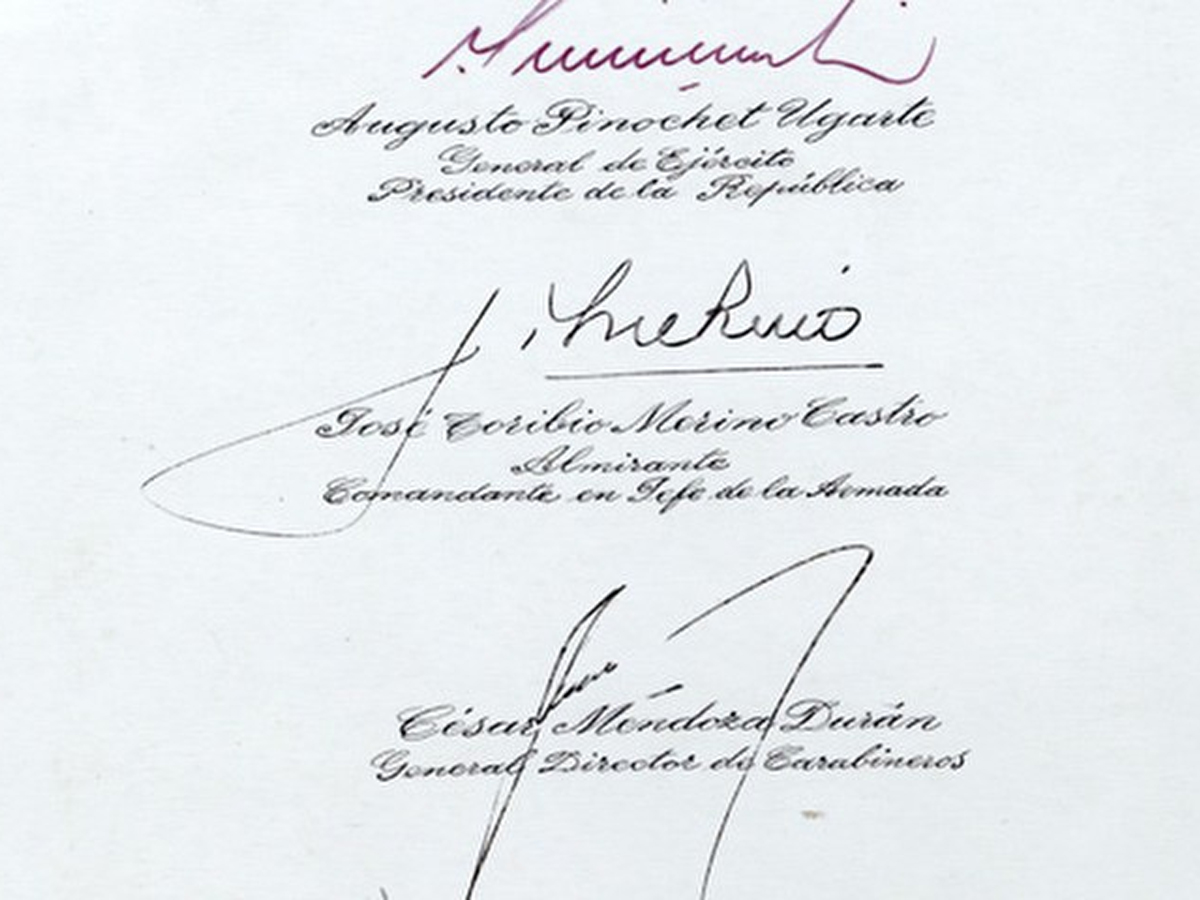 Augusto Pinochet Ugarte
General de Ejército
Presidente de la República
J. T. Merino
José Toribio Merino Castro
Almirante
Comandante en Jefe de la Armada
César Mendoza Durán
General Director de Carabineros